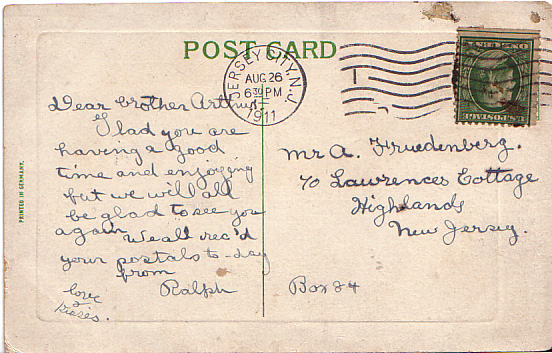 POST CARD
JERSEY CITY, N.J.
AUG 26
6 30 PM
1911
Dear brother Arthur,
Glad you are
having a good
time and enjoying
but we will all
be glad to see you
again. We all rec'd
your postals to-day
from
Ralph
love
&
kisses.
Mr A. Fruedenberg.
70 Lawrences Cottage
Highlands
New Jersey.
Box 24
PRINTED IN GERMANY.